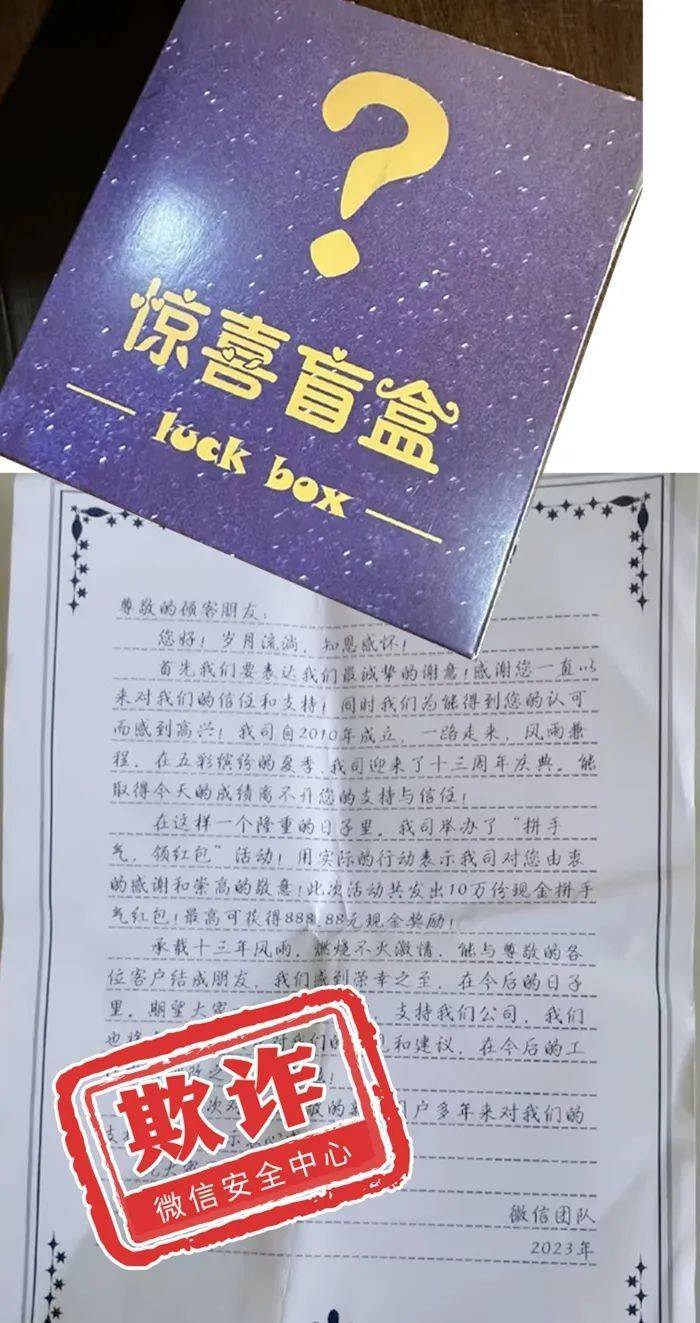 ?
惊喜盲盒
luck box
尊敬的顾客朋友：
您好！岁月流淌，知恩感怀！
首先我们要表达我们最诚挚的谢意！感谢您一直以
来对我们的信任和支持！同时我们为能得到您的认可
而感到高兴！我司自2010年成立，一路走来，风雨兼
程，在五彩缤纷的夏季，我司迎来了十三周年庆典。能
取得今天的成绩离不开您的支持与信任！
在这样一个隆重的日子里，我司举办了“拼手
气，领红包”活动！用实际的行动表示我司对您由衷
的感谢和崇高的敬意！此次活动共发出10万份现金拼手
气红包！最高可获得888.88元现金奖励！
承载十三年风雨，燃烧不火激情，能与尊敬的各
位客户结成朋友，我们感到荣幸之至，在今后的日子
里，期望大家 支持我们公司，我们
也将 对我们的 见和建议，在今后的工
改之
次对 敬的 用户多年来对我们的
支 示衷心
欺诈
微信安全中心
微信团队
2023年